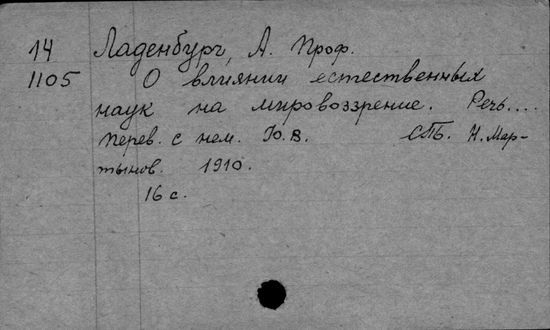 14 Ладенбург, А. Проф.
1105 О влиянии естественных
наук на мировоззрение. Речь....
Перев. с нем. Ю.В. СПБ. Н. Мар-
тынов. 1910.
16 с.